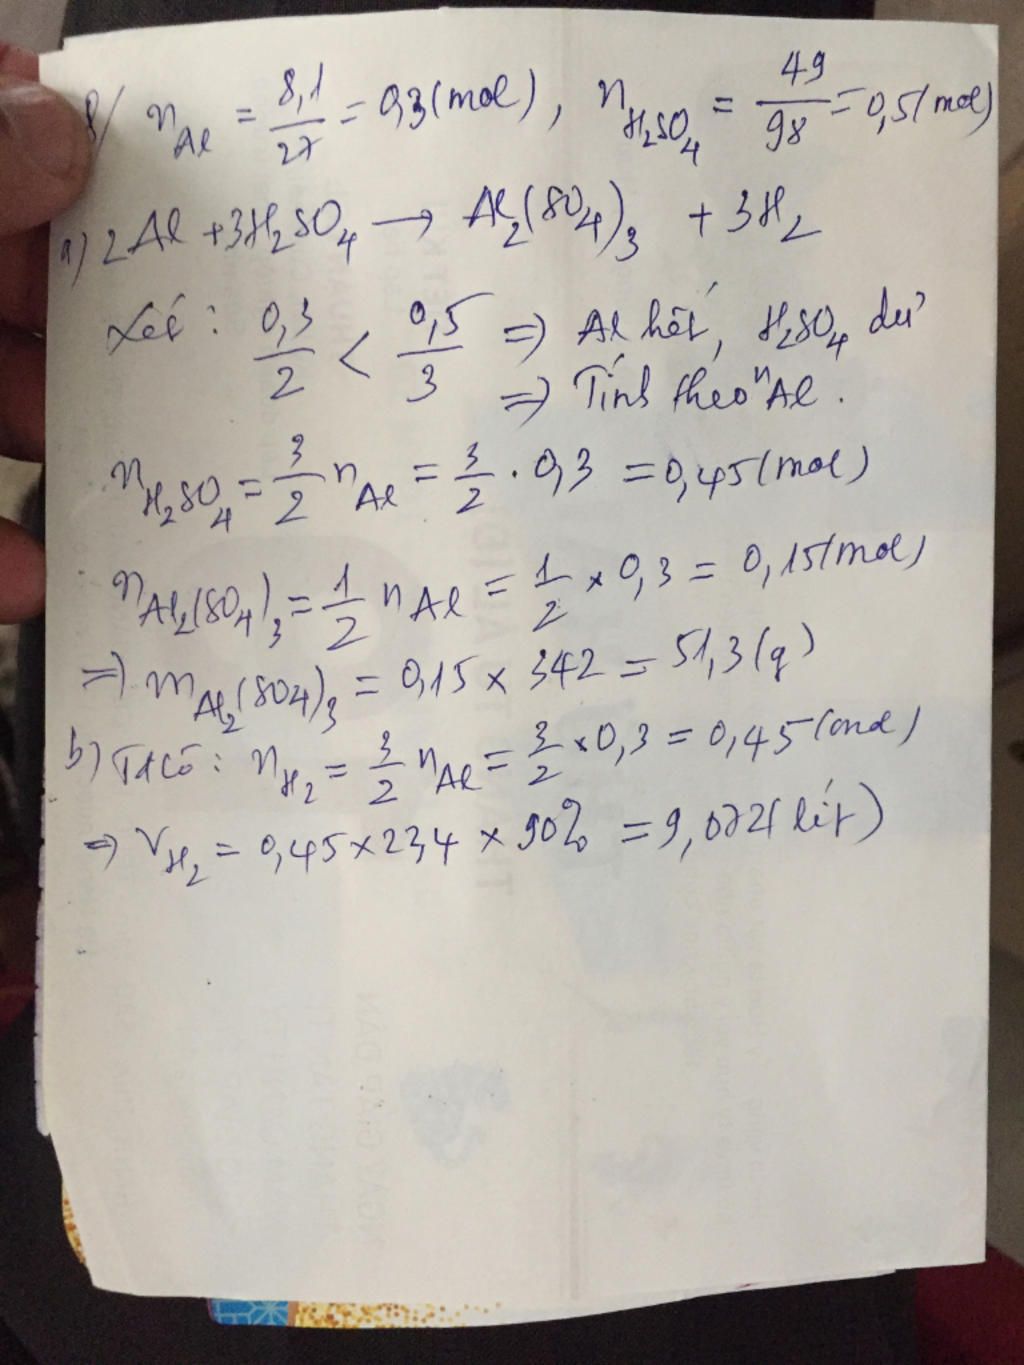 8/ n_Al = 8,1/27 = 0,3 (mol), n_H₂SO₄ = 49/98 = 0,5 (mol)
a) 2Al + 3H₂SO₄ → Al₂(SO₄)₃ + 3H₂
Xét: 0,3/2 < 0,5/3 => Al hết, H₂SO₄ dư
=> Tính theo n Al.
n_H₂SO₄ = 3/2 n_Al = 3/2 . 0,3 = 0,45 (mol)
n_Al₂(SO₄)₃ = 1/2 n_Al = 1/2 x 0,3 = 0,15 (mol)
=> m_Al₂(SO₄)₃ = 0,15 x 342 = 51,3 (g)
b) Ta có: n_H₂ = 3/2 n_Al = 3/2 x 0,3 = 0,45 (mol)
=> V_H₂ = 0,45 x 22,4 x 90% = 9,072 (lít)